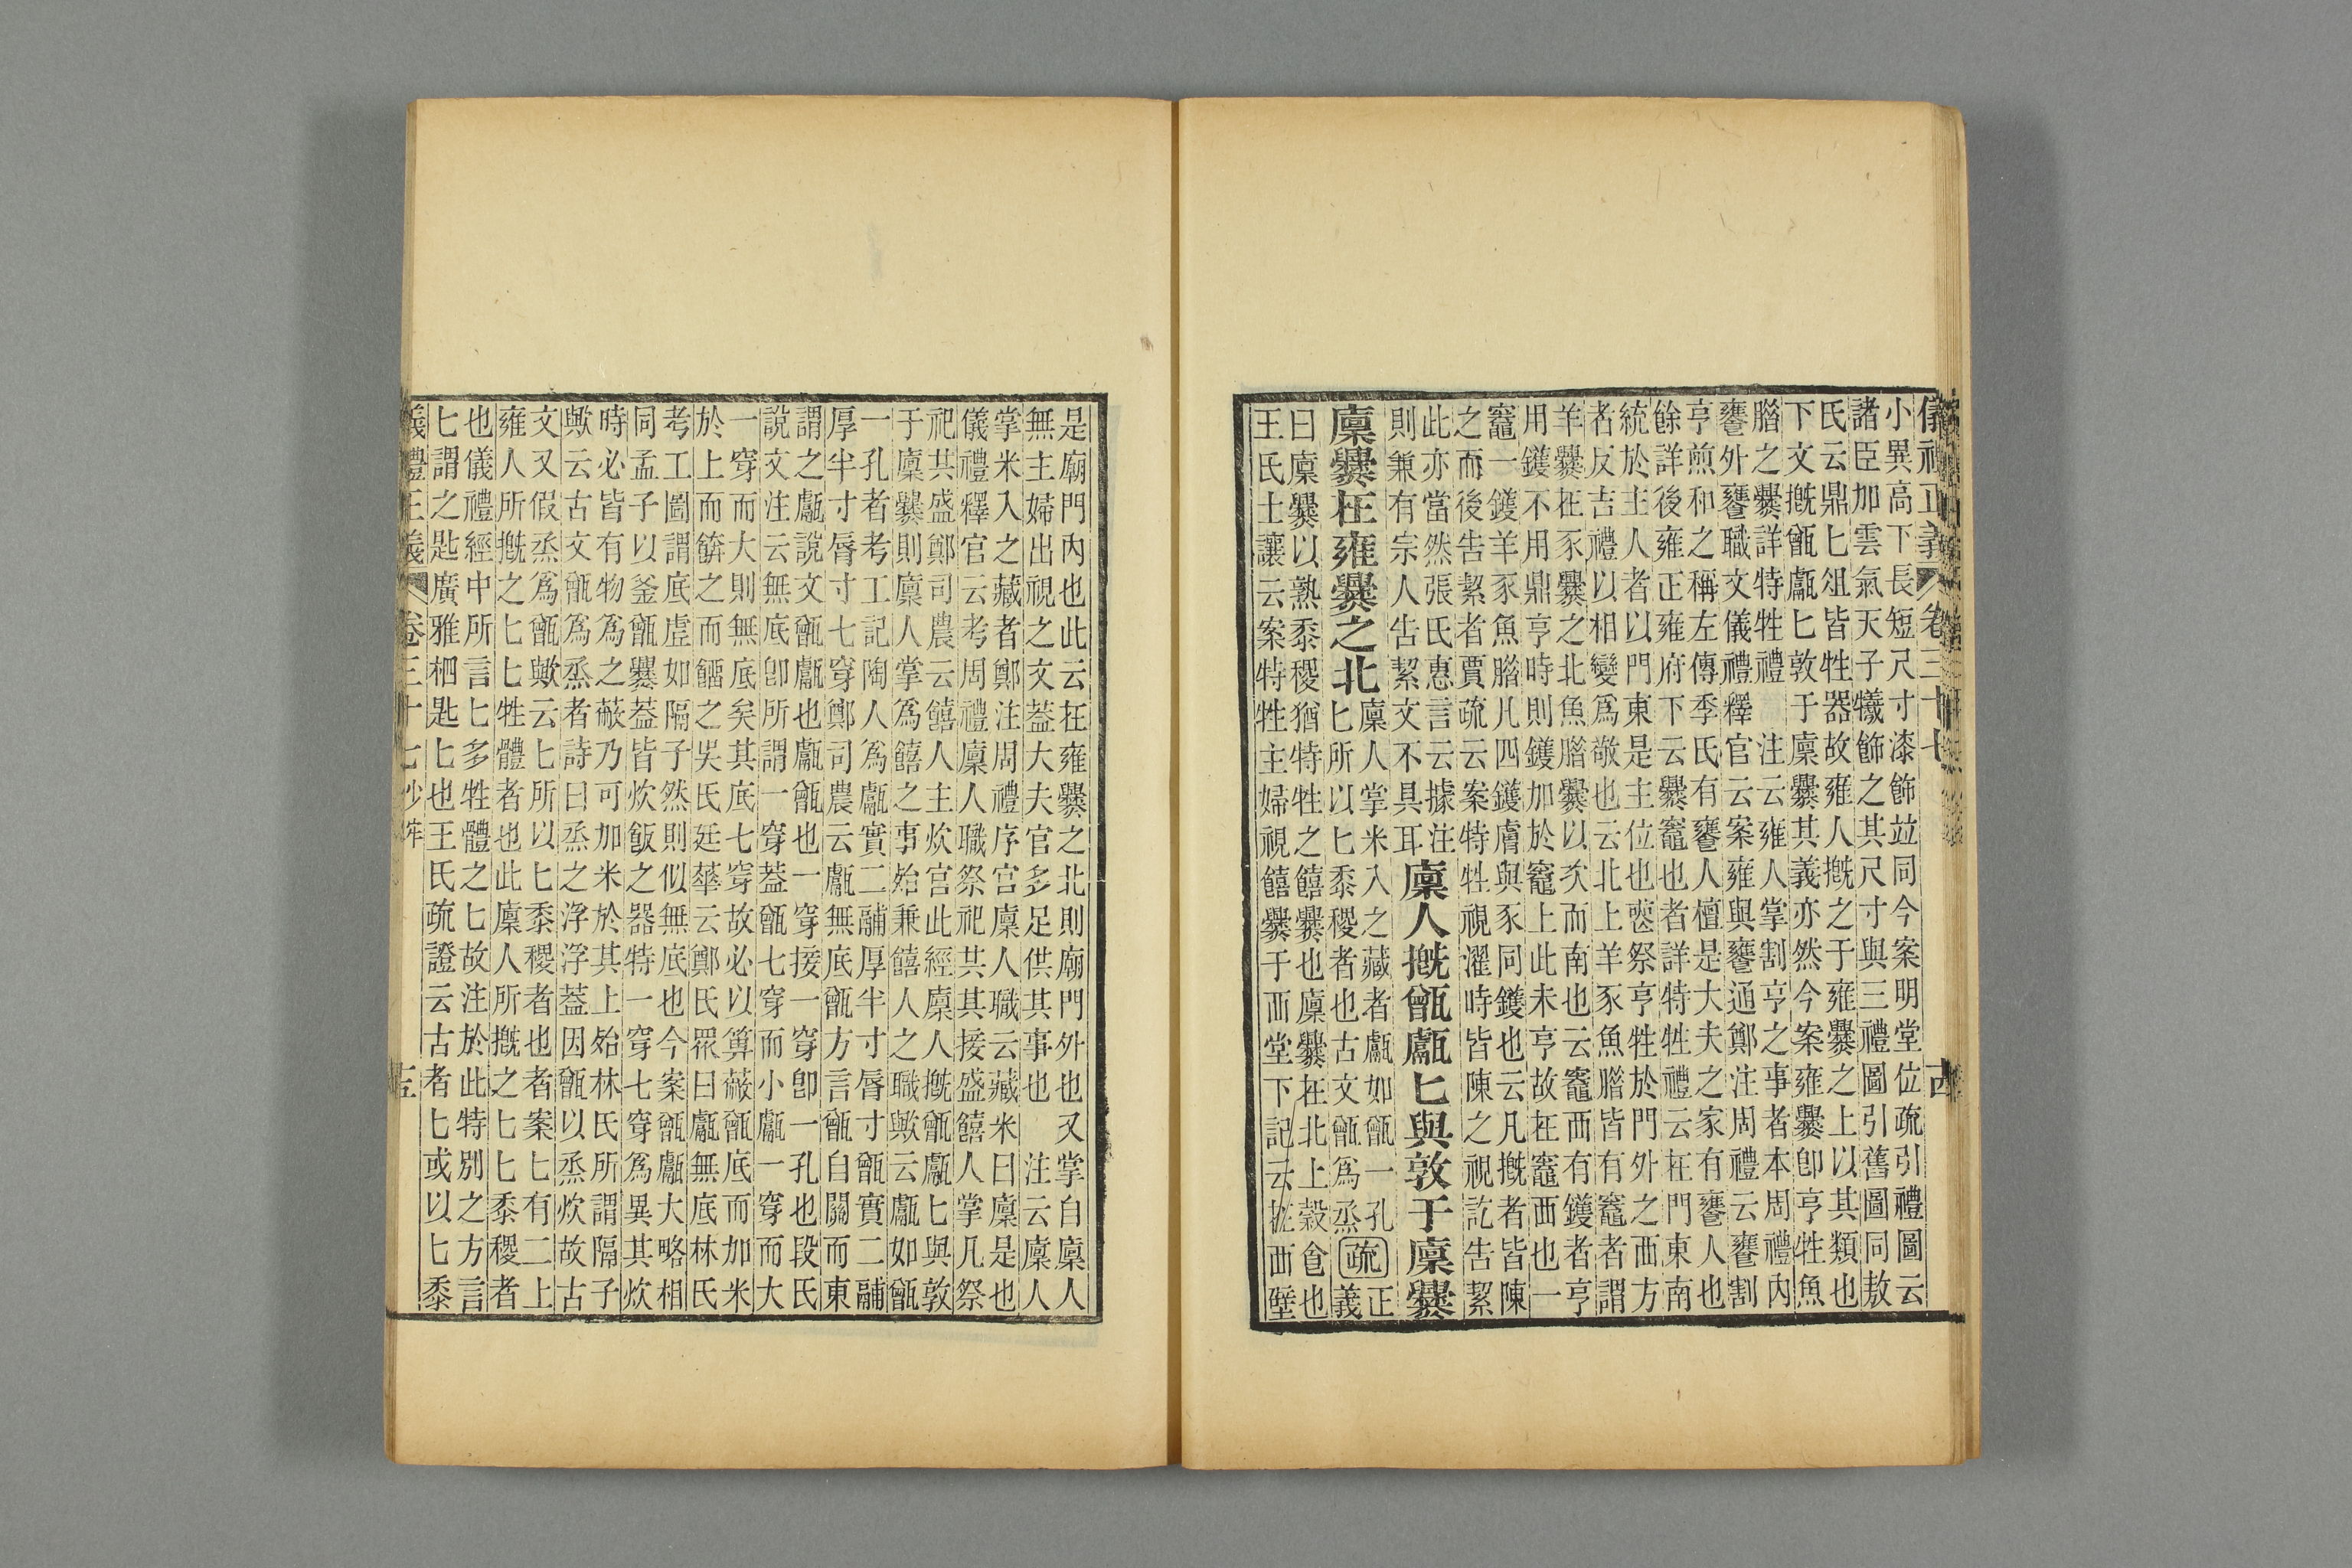 儀禮正義卷三十七
小異高下長短尺寸漆飾竝同今案明堂位疏引禮圖云
諸臣加雲氣天子犧飾之其尺寸與三禮圖引舊圖同敖
氏云鼎匕俎皆牲器故雍人摡之于雍爨之上以其類也
下文摡甑甗匕敦于廩爨其義亦然今案雍爨卽亨牲魚
腊之爨詳特牲禮 注云雍人掌割亨之事者本周禮內
饔外饔職文儀禮釋官云案雍與饔通鄭注周禮云饔割
亨煎和之稱左傳季氏有饔人檀是大夫之家有饔人也
餘詳後雍正雍府下云爨竈也者詳特牲禮云在門東南
統於主人者以門東是主位也䙴祭亨牲於門外之西方
者反吉禮以相變爲敬也云北上羊豕魚腊皆有竈者謂
羊爨在豕爨之北魚腊爨以次而南也云竈西有鑊者亨
用鑊不用鼎亨時則鑊加於竈上此未亨故在竈西也一
竈一鑊羊豕魚腊凡四鑊膚與豕同鑊也云凡摡者皆陳
之而後告絜者賈疏云案特牲視濯時皆陳之視訖告絜
此亦當然張氏惠言云據注
則兼有宗人告絜文不具耳
廩人摡甑甗匕與敦于廩爨
廩爨在雍爨之北
廩人掌米入之藏者甗如甑一孔
匕所以匕黍稷者也古文甑爲烝
疏
正
義
曰廩爨以熟黍稷猶特牲之饎爨也廩爨在北上穀食也
王氏士讓云案特牲主婦視饎爨于西堂下記云在西壁
是廟門內也此云在雍爨之北則廟門外也又掌自廩人
無主婦出視之文葢大夫官多足供其事也 注云廩人
掌米入之藏者鄭注周禮序官廩人職云藏米曰廩是也
儀禮釋官云考周禮廩人職祭祀共其接盛饎人掌凡祭
祀共盛鄭司農云饎人主炊官此經廩人摡甑甗匕與敦
于廩爨則廩人掌爲饎之事始兼饎人之職歟云甗如甑
一孔者考工記陶人爲甗實二鬴厚半寸脣寸甑實二鬴
厚半寸脣寸七穿鄭司農云甗無底甑方言甑自關而東
謂之甗說文甑甗也甗甑也一穿接一穿卽一孔也段氏
說文注云無底卽所謂一穿葢甑七穿而小甗一穿而大
一穿而大則無底矣其底七穿故必以箅蔽甑底而加米
於上而餴之而餾之吳氏廷華云鄭氏眾曰甗無底林氏
考工圖謂底虛如隔子然則似無底也今案甑甗大略相
同孟子以釜甑爨葢皆炊飯之器特一穿七穿爲異其炊
時必皆有物爲之蔽乃可加米於其上始林氏所謂隔子
歟云古文甑爲烝者詩曰烝之浮浮葢因甑以烝炊故古
文又假烝爲甑歟云匕所以匕黍稷者也者案匕有二上
雍人所摡之匕匕牲體者也此廩人所摡之匕匕黍稷者
也儀禮經中所言匕多牲體之匕故注於此特別之方言
匕謂之匙廣雅柶匙匕也王氏疏證云古者匕或以匕黍
儀禮正義卷三十七